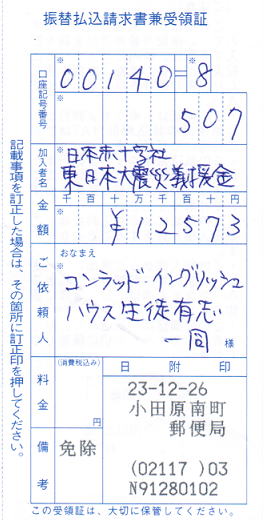 振替払込請求書兼受領証
口座記号番号
※
00140=8
※
507
加入者名
※
日本赤十字社
東日本大震災義援金
金額
千百十万千百十円
※
¥12573
ご依頼人
おなまえ
※
コンラッド・イングリッシュ
ハウス生徒有志
一同 様
料金
(消費税込み)
円
備考
免除
日附印
23-12-26
小田原南町
郵便局
(02117 )03
N91280102
記載事項を訂正した場合は、その箇所に訂正印を押してください。
この受領証は、大切に保管してください。